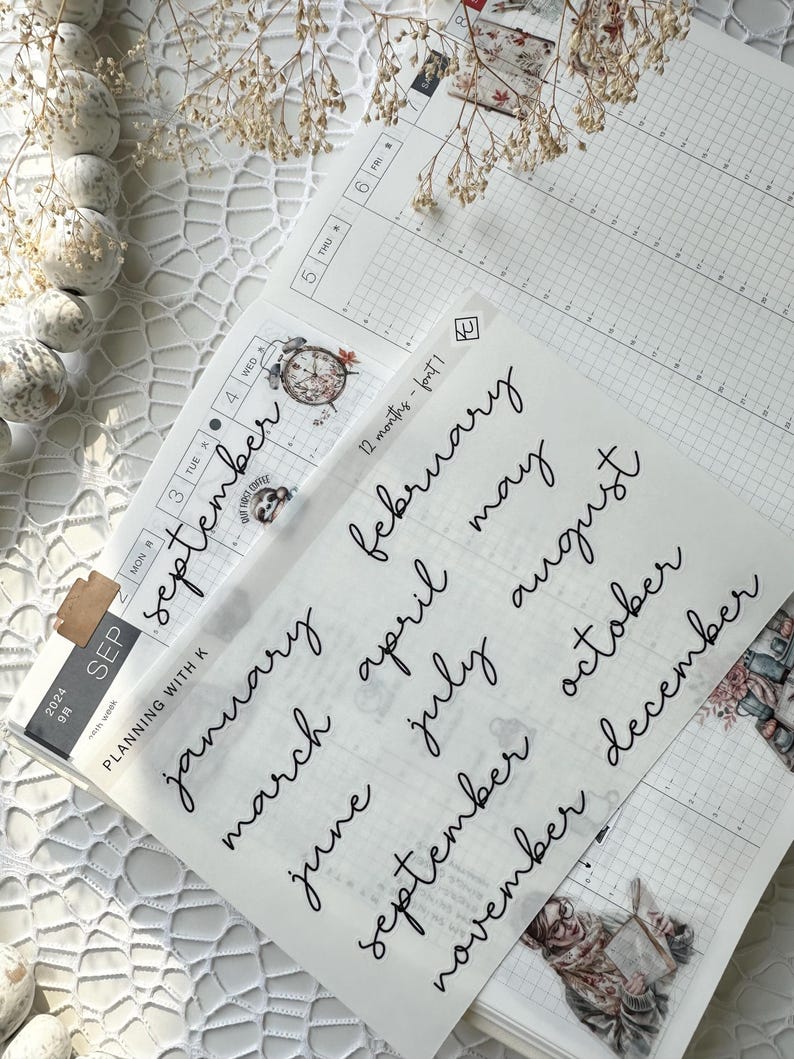 8
SA
6 FRI 金
5 THU 木
4 WED 水
3 TUE 火
2 MON 月
september
BUT FIRST COFFEE
SEP
2024
9月
36th week
PLANNING WITH K
12 months - font 1
january
february
march
april
may
june
july
august
september
october
november
december